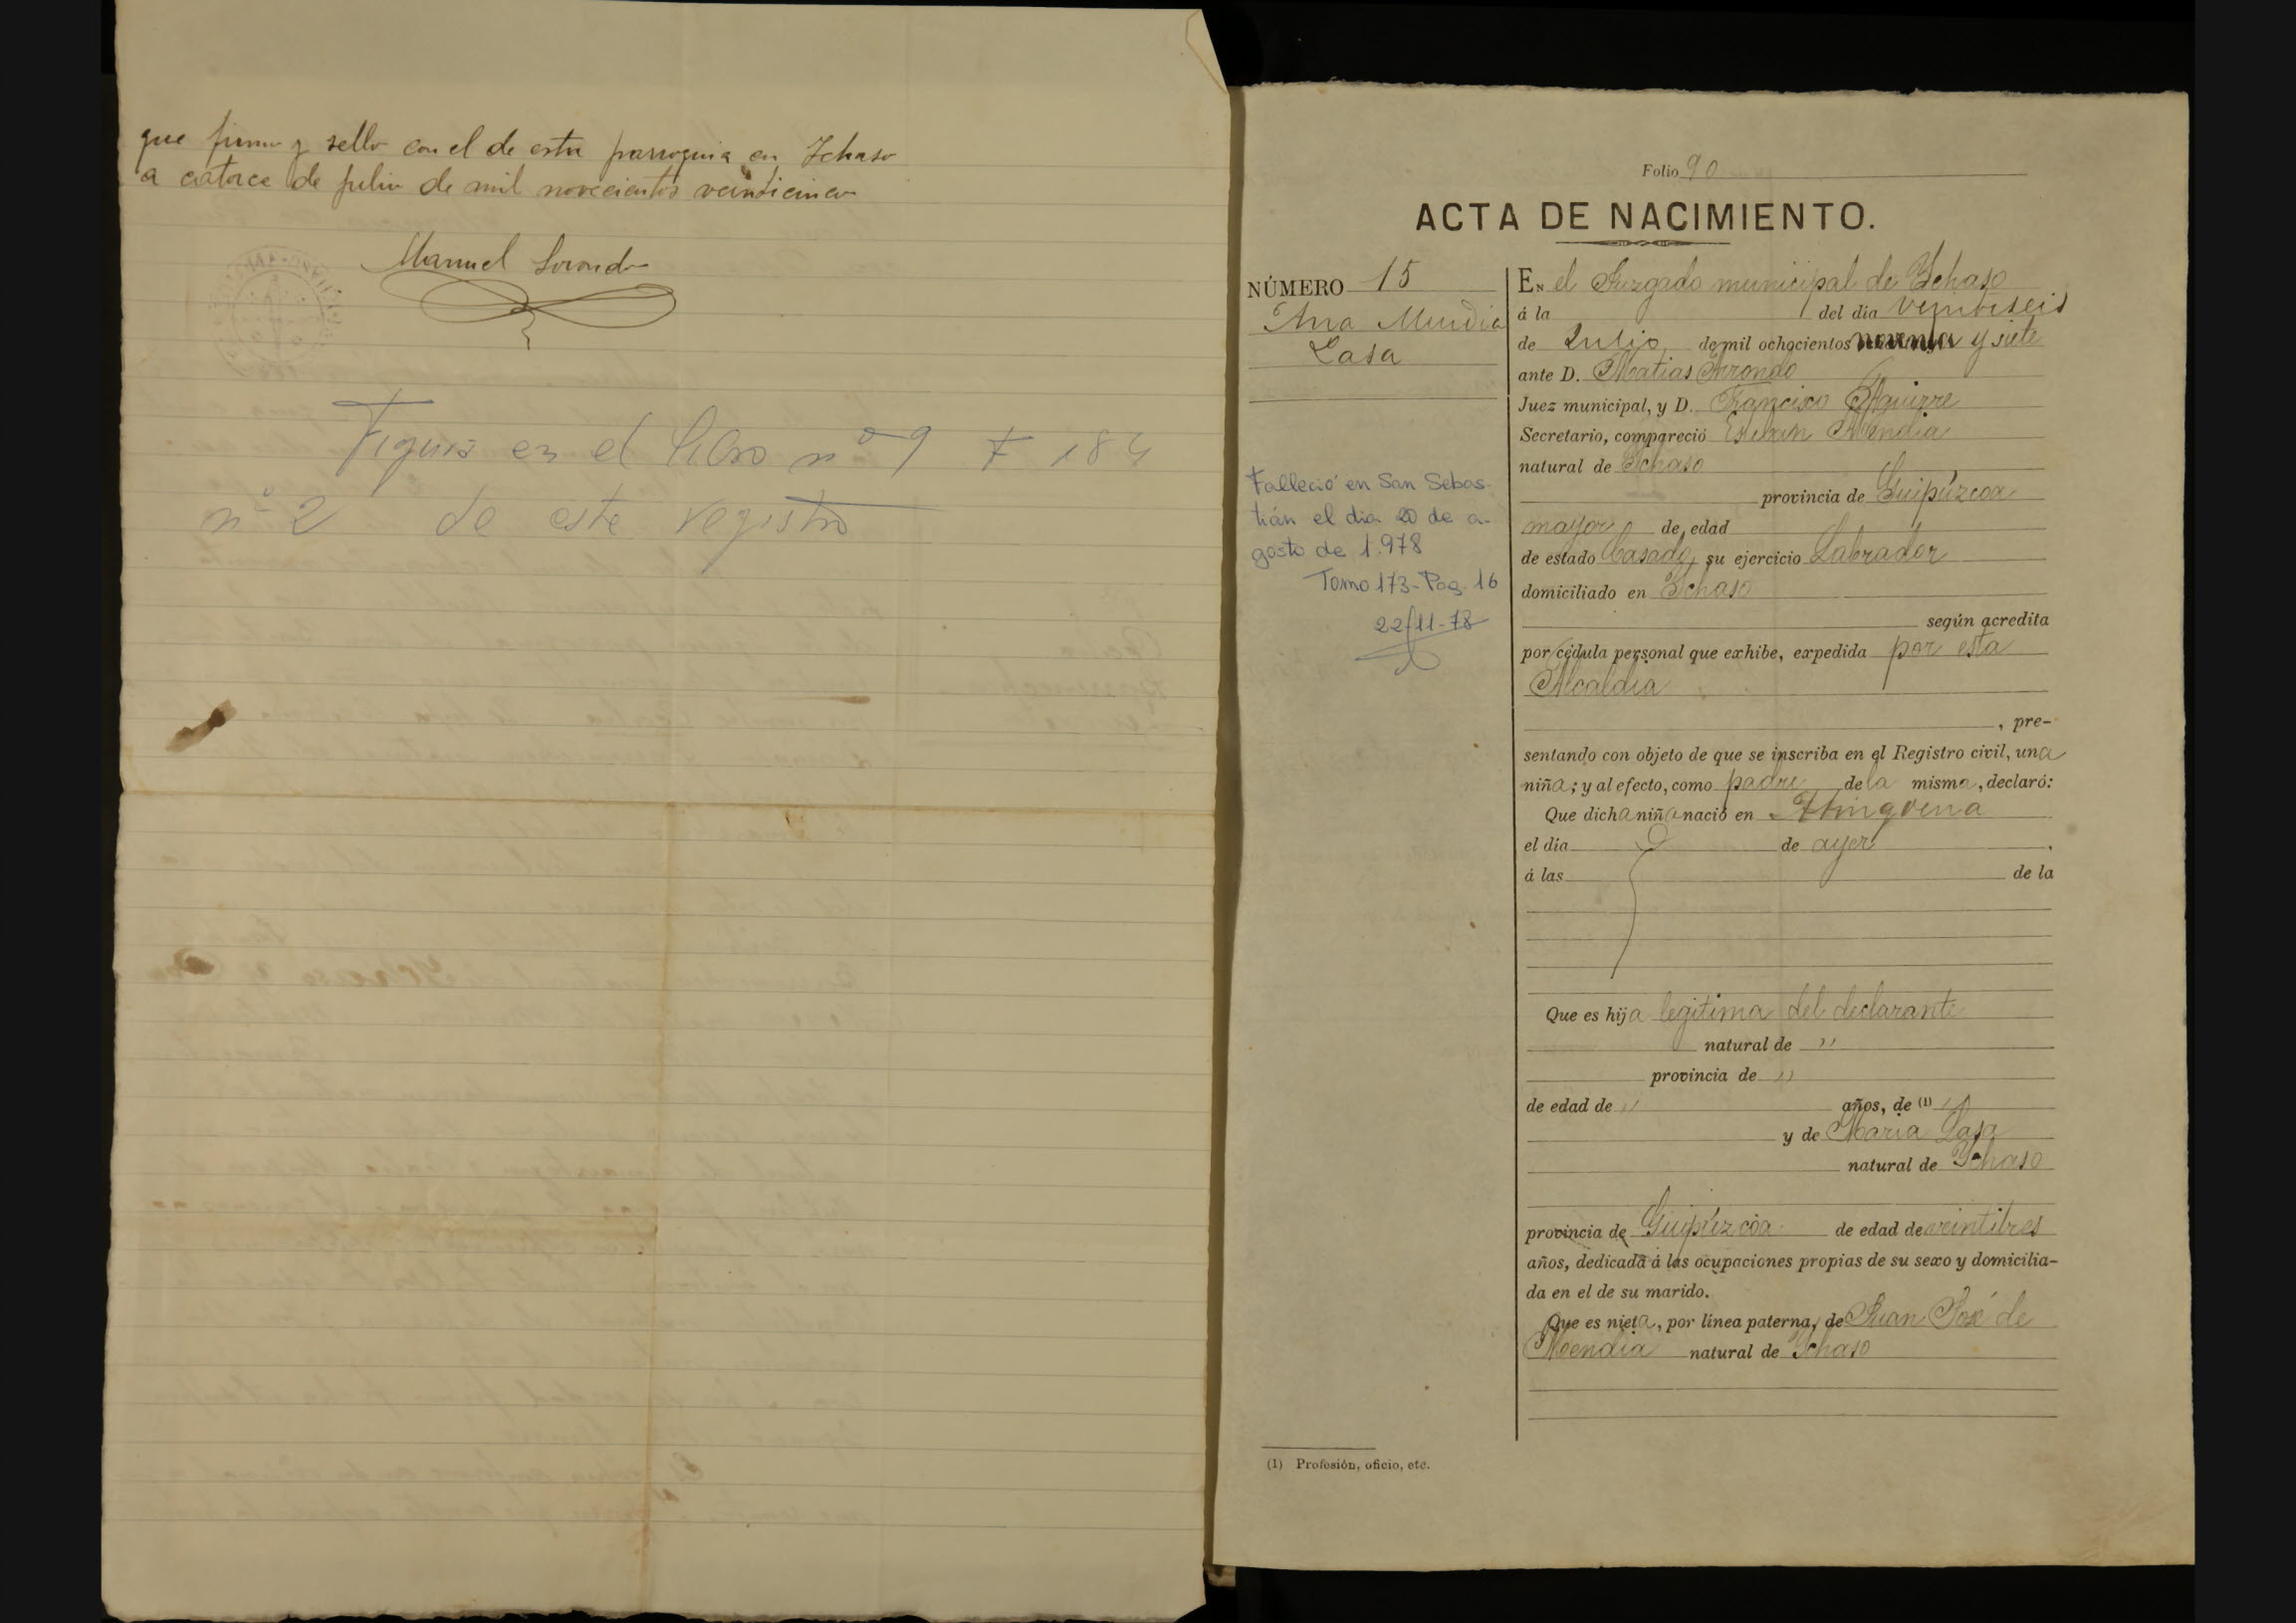 que firmo y sello con el de esta parroquia en Ichaso
a catorce de julio de mil novecientos veinticinco
Manuel
Figura en el libro nº 9 F 184
nº 2 de este registro
Folio 90
ACTA DE NACIMIENTO.
NÚMERO 15
Ana Mendia
Lasa
Falleció en San Sebas-
tián el dia 20 de a-
gosto de 1.978
Tomo 173-Pag. 16
22/11-78
EN el Juzgado municipal de Ychaso
á la del dia veintiseis
de Julio de mil ochocientos noventa y siete
ante D. Matias Arrondo
Juez municipal, y D. Francisco Aguirre
Secretario, compareció Esteban Mendia
natural de Ychaso
provincia de Guipúzcoa
mayor de edad
de estado Casado, su ejercicio Labrador
domiciliado en Ychaso
según acredita
por cédula personal que exhibe, expedida por esta
Alcaldia
, pre-
sentando con objeto de que se inscriba en el Registro civil, una
niña; y al efecto, como padre de la misma, declaró:
Que dicha niña nació en
el día de ayer .
á las de la
Que es hija legitima del declarante
natural de "
provincia de "
de edad de " años, de (1) "
y de Maria Lasa
natural de Ychaso
provincia de Guipúzcoa de edad de veintitres
años, dedicada á las ocupaciones propias de su sexo y domicilia-
da en el de su marido.
Que es nieta, por línea paterna, de Juan José de
Mendia natural de Ychaso
(1) Profesión, oficio, etc.